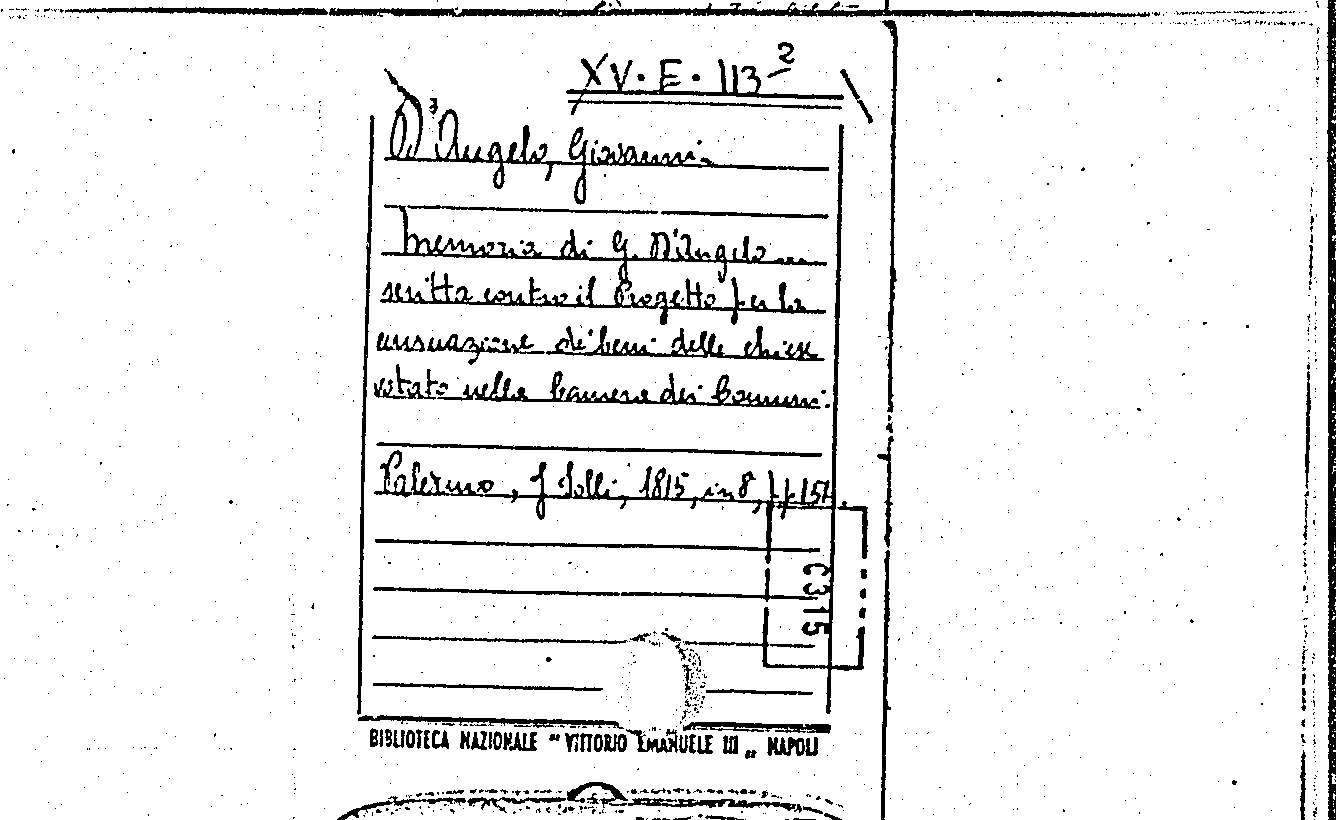 XV. E. 113 2
D'Angelo, Giovanni.
Memoria di G. D'Angelo...
scritta contro il Progetto per la
censuazione de' beni delle chiese
votato nella Camera dei Comuni.
Palermo, f Solli, 1815, in 8, pp 151.
C315
BIBLIOTECA NAZIONALE " VITTORIO EMANUELE III „ NAPOLI